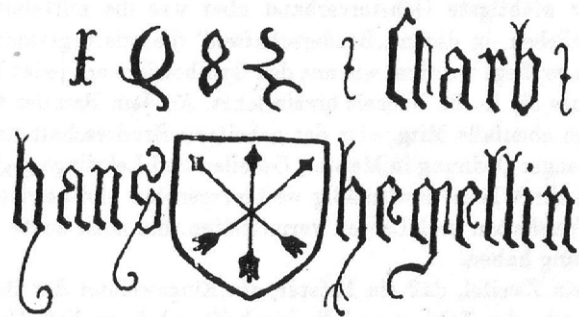 1482 starb
hans hegellin